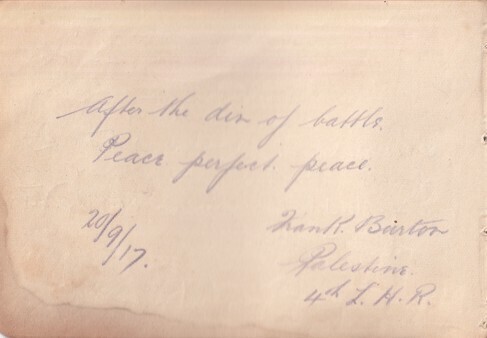 After the din of battle.
Peace. perfect. peace.
20/9/17.
Frank. Burton
Palestine.
4th L. H. R.